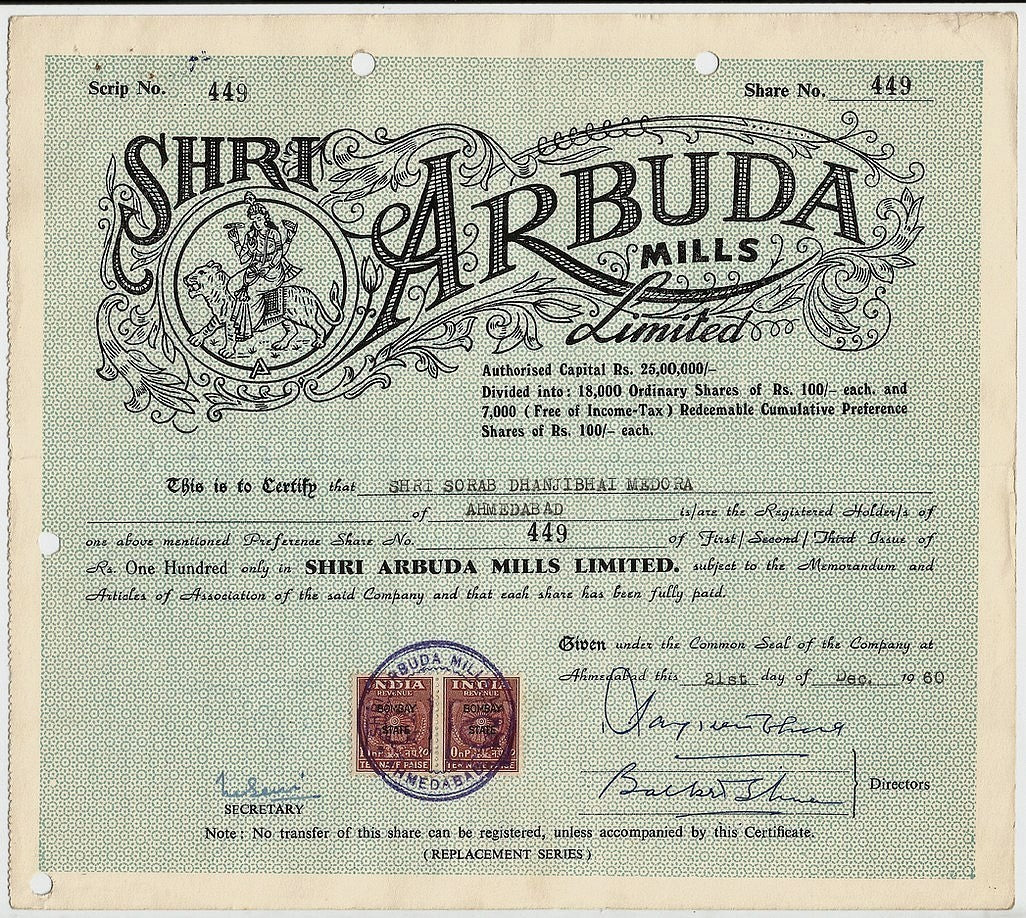 Scrip No. 449
Share No. 449
SHRI
ARBUDA
MILLS
Limited
Authorised Capital Rs. 25,00,000/-
Divided into: 18,000 Ordinary Shares of Rs. 100/- each. and
7,000 (Free of Income-Tax) Redeemable Cumulative Preference
Shares of Rs. 100/- each.
This is to Certify that SHRI SORAB DHANJIBHAI MEDORA
of AHMEDABAD is/are the Registered Holder/s of
one above mentioned Preference Share No. 449 of First/Second/Third Issue of
Rs. One Hundred only in SHRI ARBUDA MILLS LIMITED. subject to the Memorandum and
Articles of Association of the said Company and that each share has been fully paid.
Given under the Common Seal of the Company at
Ahmedabad this 21st day of Dec. 1960
ARBUDA MILL
INDIA INDIA
REVENUE REVENUE
BOMBAY BOMBAY
STATE STATE
TEN NAYE PAISE TEN
AHMEDABAD
Directors
SECRETARY
Note: No transfer of this share can be registered, unless accompanied by this Certificate.
(REPLACEMENT SERIES)